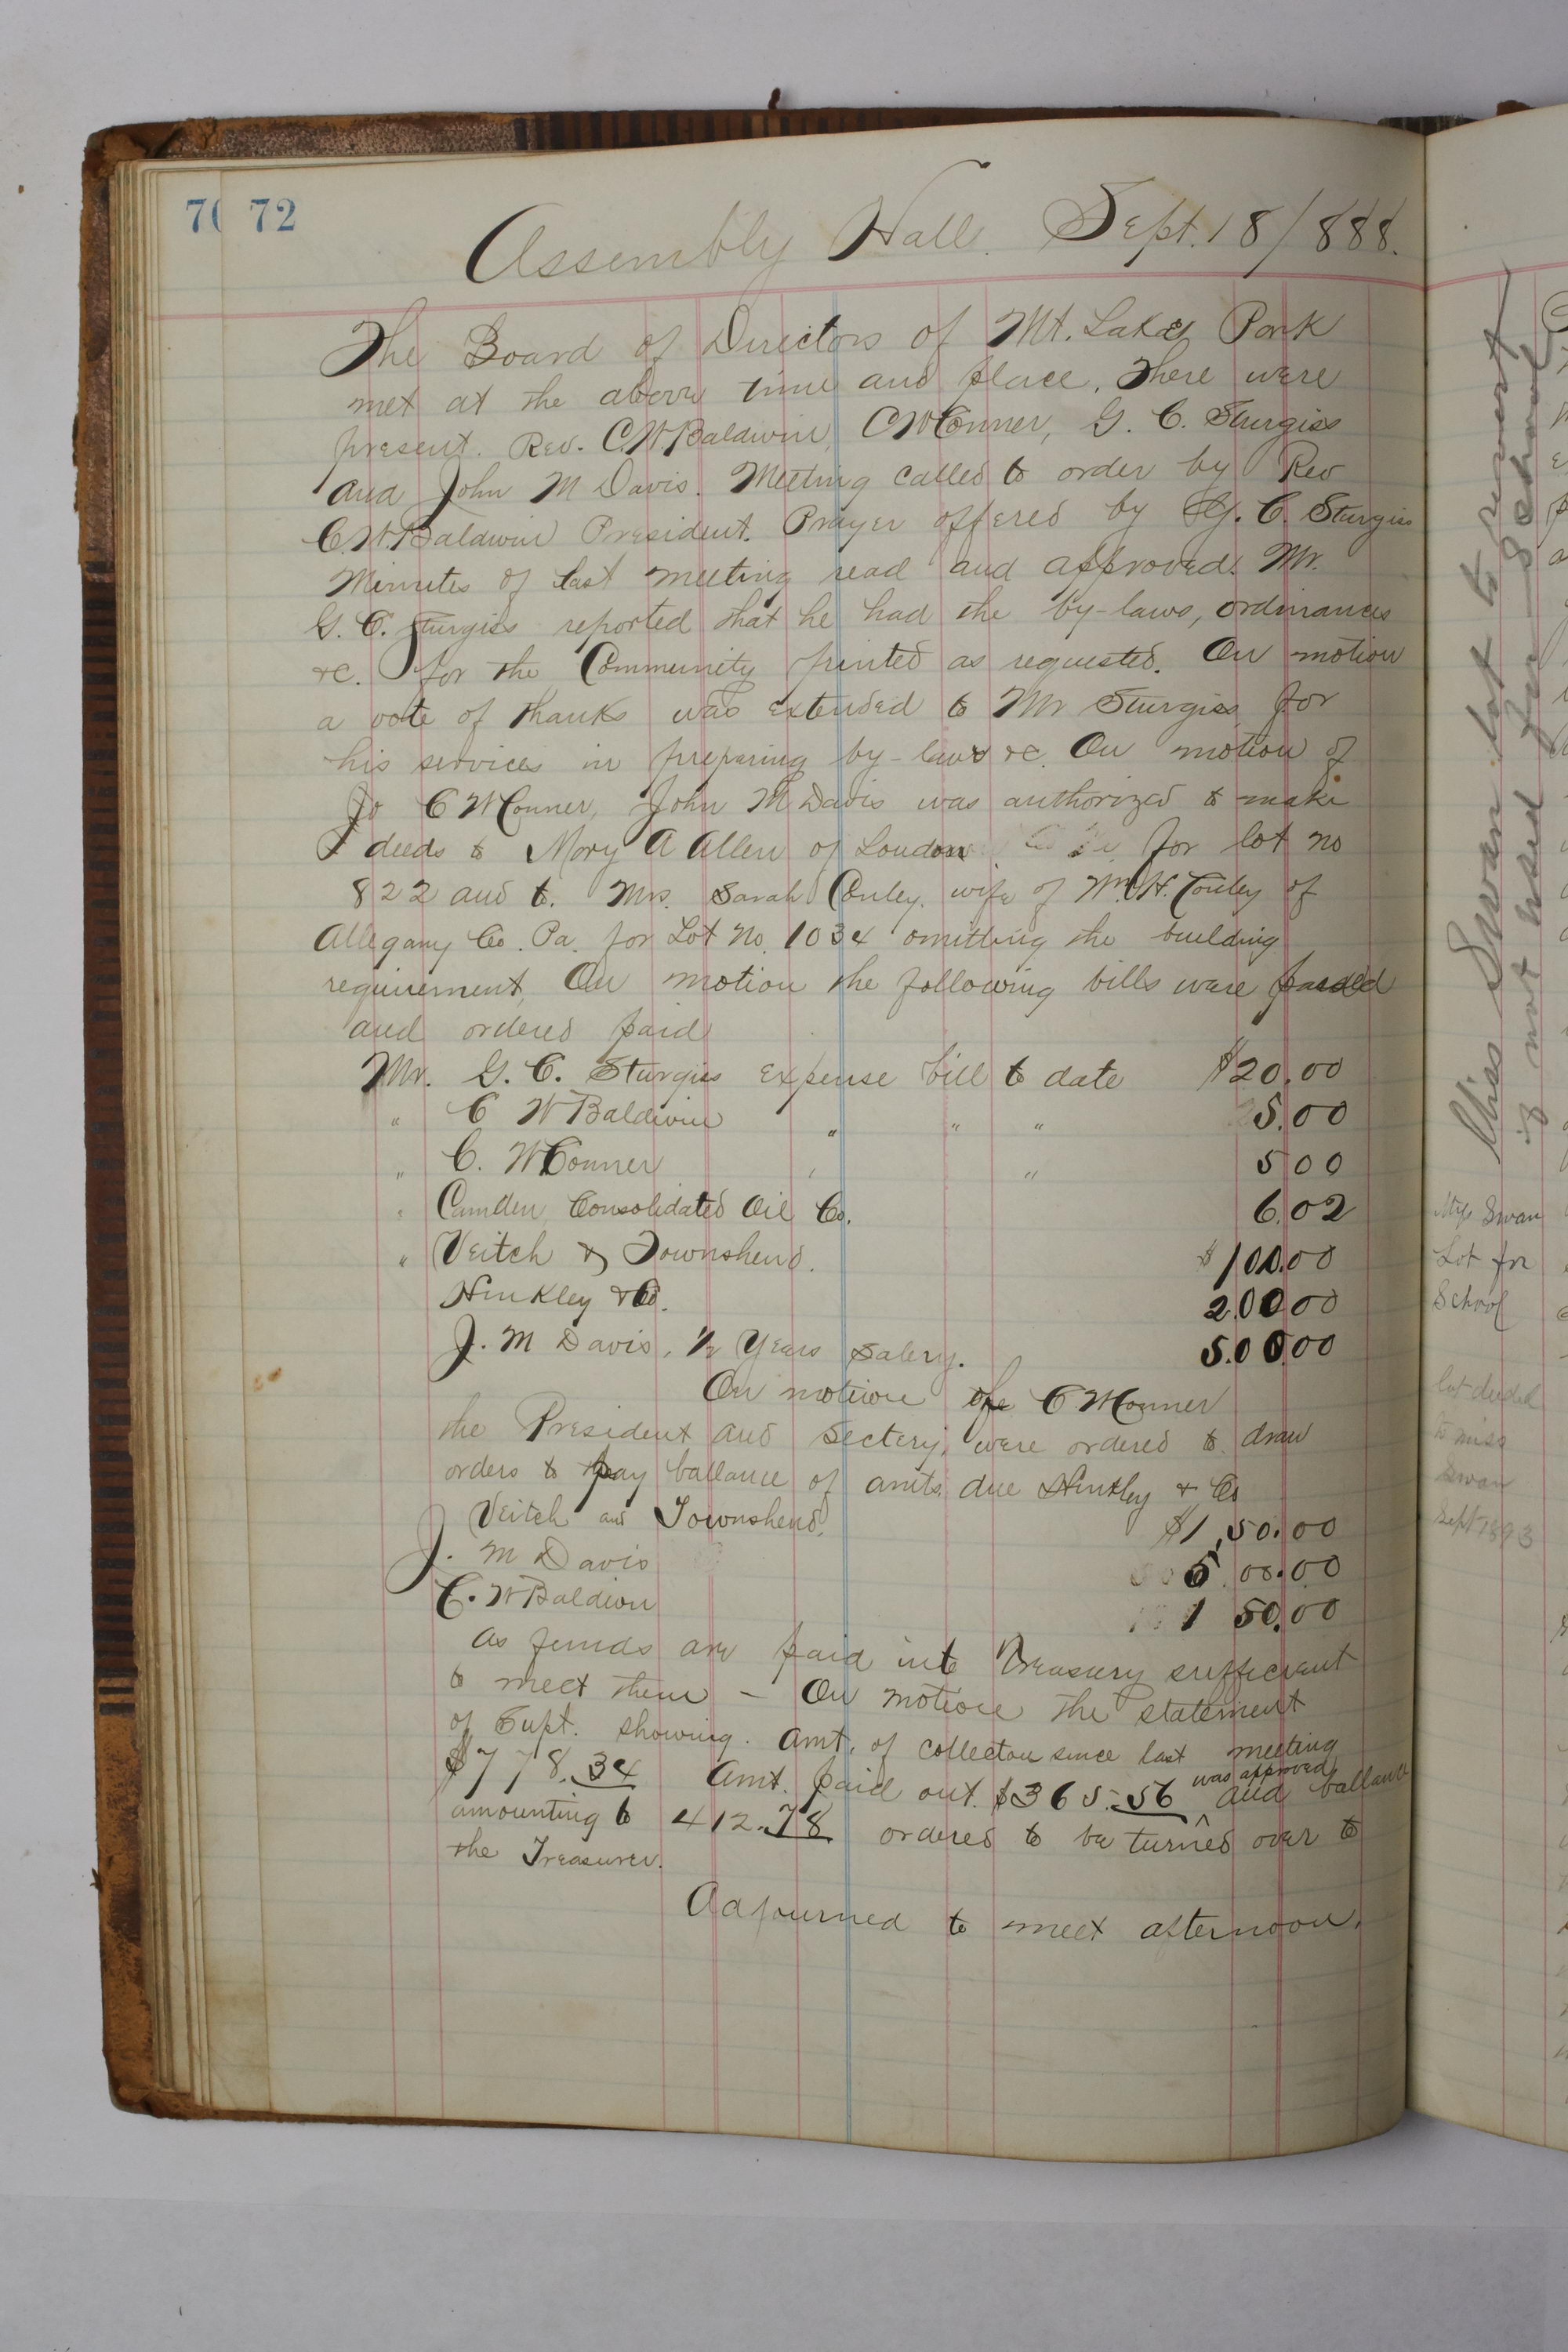 70 72
Assembly Hall. Sept. 18/888.
The Board of Directors of Mt. Lake Park
met at the above time and place. There were
present. Rev. C.W. Baldwin, C W Conner, G. C. Sturgiss
and John M Davis. Meeting called to order by Rev
C.W. Baldwin President. Prayer offered by G. C. Sturgiss
Minutes of last meeting read and approved. Mr.
G. C. Sturgiss reported that he had the by-laws, ordinances
&c. for the Community printed as requested. On motion
a vote of thanks was extended to Mr Sturgiss for
his services in preparing by-laws &c. On motion of
C W Conner, John M. Davis was authorized to make
deeds to Mary A Allen of Loudon for lot no
822 and to. Mrs. Sarah Conley. wife of Wm. H. Conley of
Allegany Co. Pa. for Lot No. 1034 omitting the building
requirement, On motion the following bills were passed
and ordered paid
Mr. G. C. Sturgiss Expense bill to date $20.00
" C W Baldwin " " " 5.00
" C. W Conner " " 500
" Camden Consolidated Oil Co. 6.02
" Veitch & Townshend. $100.00
Hinkley & Co. 200.00
J. M Davis, 1/2 Years Salery. 500.00
On motion of C W Conner
the President and Sectery, were ordered to draw
orders to pay ballance of amts. due Hinkley & Co
Veitch and Townshend, $1,50.00
J. M Davis 5,00.00
C. W Baldwin 1 50.00
As funds are paid into Treasury sufficient
to meet them — On motion the statement
of Supt. showing. Amt. of collection since last meeting
$778.34 Amt. paid out. $365.56 was approved and ballance
amounting to 412.78 ordered to be turned over to
the Treasurer.
Adjourned to meet afternoon.
Miss Swan lot to revert
if not used for School
Miss Swan
Lot for
School
lot deeded
to miss
Swan
Sept 1893